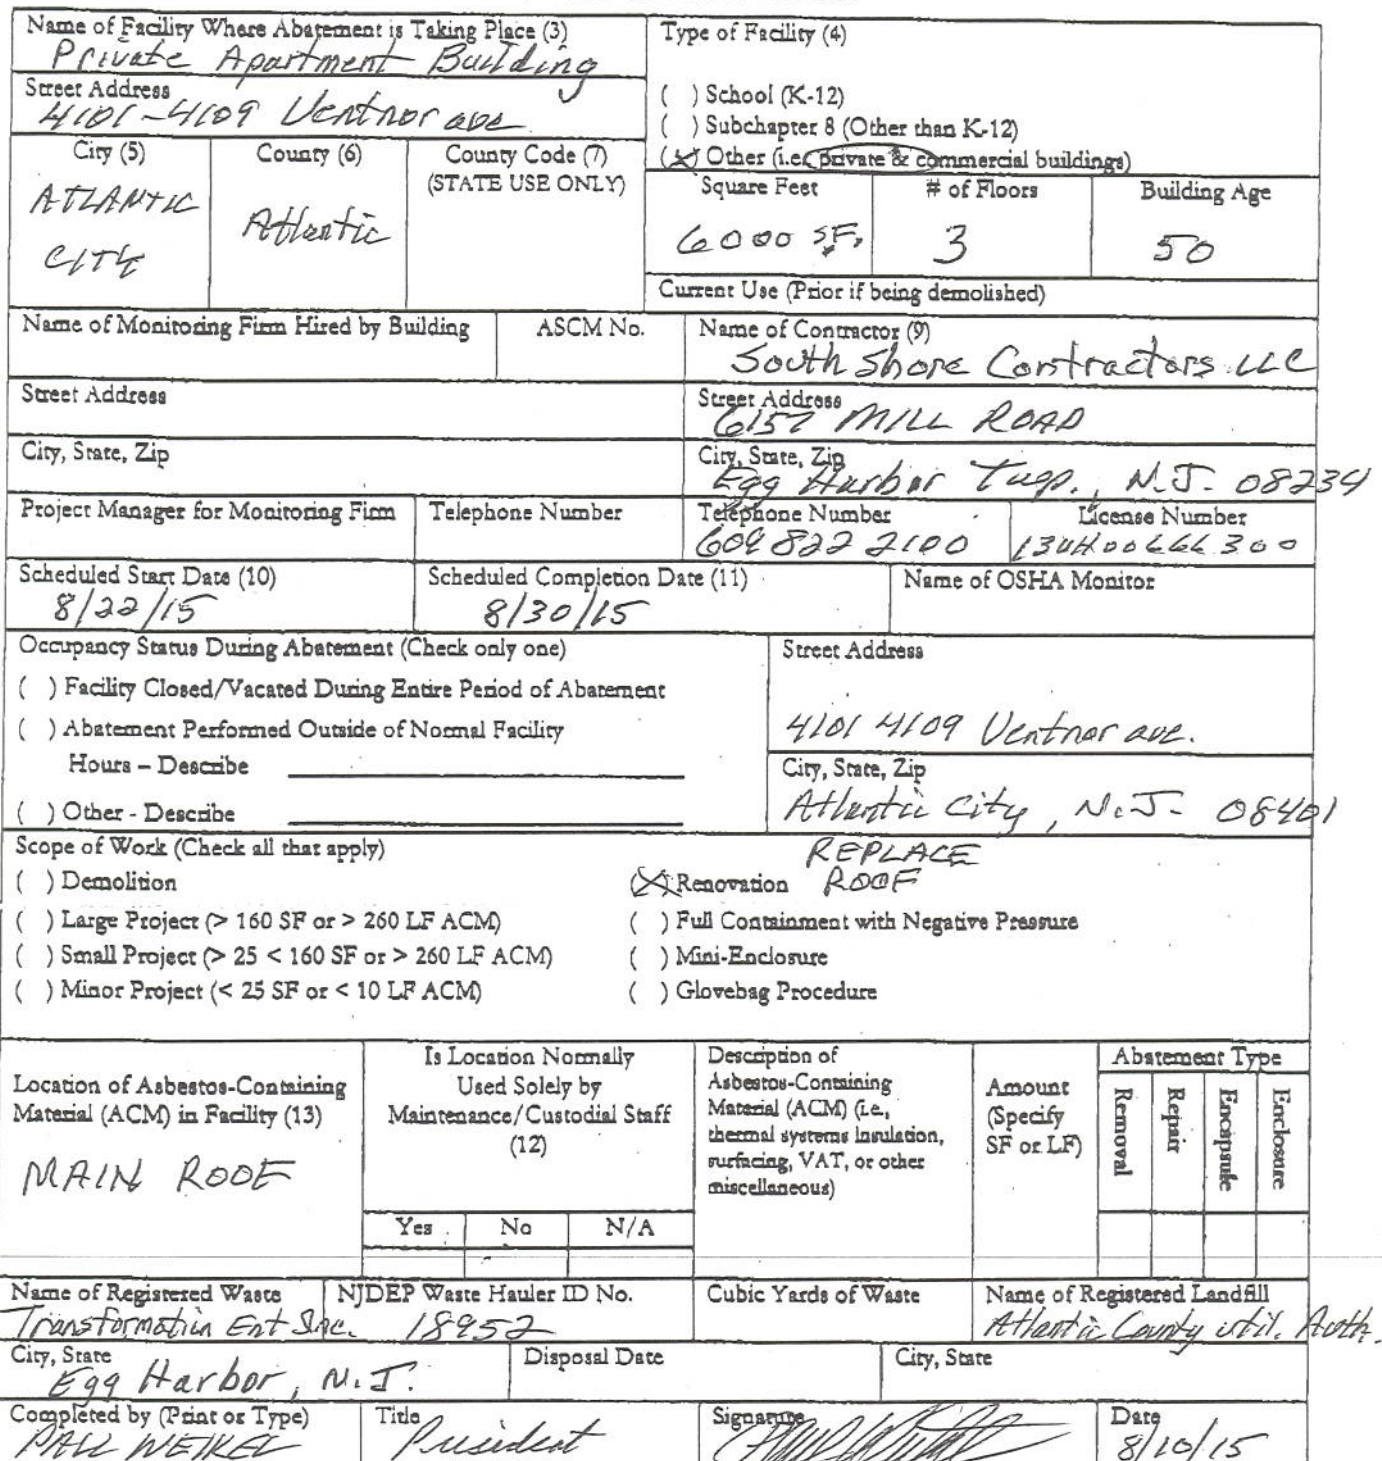 Name of Facility Where Abatement is Taking Place (3)
Private Apartment Building
Type of Facility (4)
Street Address
4101-4109 Ventnor ave
( ) School (K-12)
( ) Subchapter 8 (Other than K-12)
(X) Other (i.e. private & commercial buildings)
City (5) County (6) County Code (7)
(STATE USE ONLY)
ATLANTIC
CITY
Atlantic
Square Feet # of Floors Building Age
6000 SF. 3 50
Current Use (Prior if being demolished)
Name of Monitoring Firm Hired by Building ASCM No. Name of Contractor (9)
South Shore Contractors LLC
Street Address Street Address
6157 MILL ROAD
City, State, Zip City, State, Zip
Egg Harbor Twp., N.J. 08234
Project Manager for Monitoring Firm Telephone Number Telephone Number License Number
609 822 2100 13VH00666300
Scheduled Start Date (10) Scheduled Completion Date (11) Name of OSHA Monitor
8/22/15 8/30/15
Occupancy Status During Abatement (Check only one)
( ) Facility Closed/Vacated During Entire Period of Abatement
( ) Abatement Performed Outside of Normal Facility
Hours – Describe
( ) Other - Describe
Street Address
4101 4109 Ventnor ave.
City, State, Zip
Atlantic City, N.J. 08401
Scope of Work (Check all that apply)
( ) Demolition
( ) Large Project (> 160 SF or > 260 LF ACM)
( ) Small Project (> 25 < 160 SF or > 260 LF ACM)
( ) Minor Project (< 25 SF or < 10 LF ACM)
REPLACE
(X) Renovation ROOF
( ) Full Containment with Negative Pressure
( ) Mini-Enclosure
( ) Glovebag Procedure
Location of Asbestos-Containing
Material (ACM) in Facility (13)
MAIN ROOF
Is Location Normally
Used Solely by
Maintenance/Custodial Staff
(12)
Yes No N/A
Description of
Asbestos-Containing
Material (ACM) (i.e.,
thermal systems insulation,
surfacing, VAT, or other
miscellaneous)
Amount
(Specify
SF or LF)
Abatement Type
Removal
Repair
Encapsule
Enclosure
Name of Registered Waste NJDEP Waste Hauler ID No. Cubic Yards of Waste Name of Registered Landfill
Transformation Ent Inc. 18952 Atlantic County util. Auth.
City, State Disposal Date City, State
Egg Harbor, N.J.
Completed by (Print or Type) Title Signature Date
PAUL WEIKEL President 8/10/15